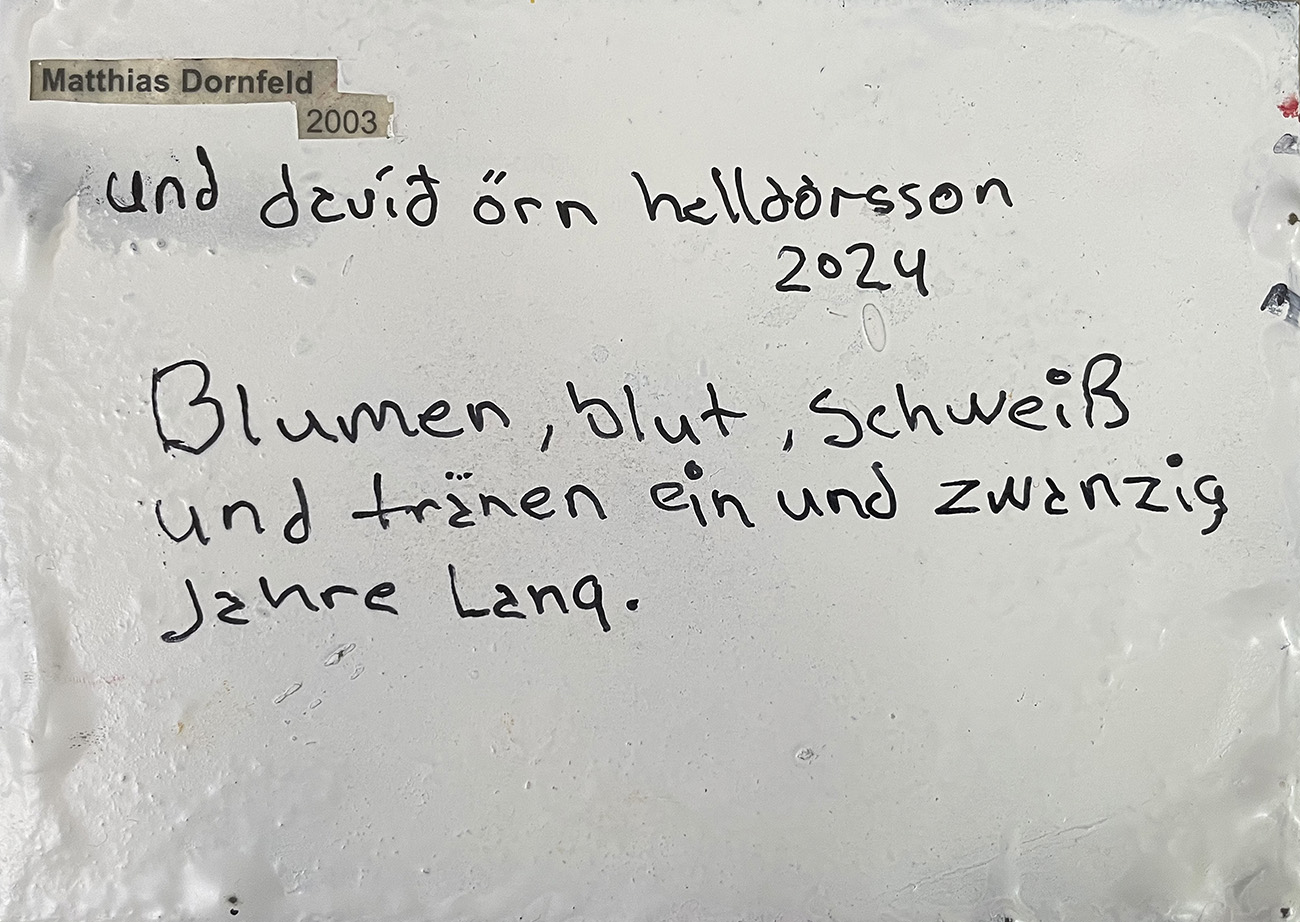 Matthias Dornfeld
2003
und davíð örn halldórsson
2024
Blumen, blut, Schweiß
und tränen ein und zwanzig
Jahre Lang.